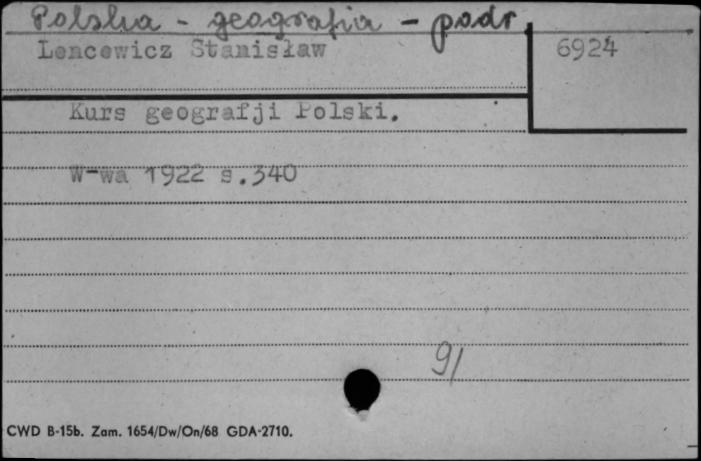 Polska - geografia - podr.
Lencewicz Stanisław 6924
Kurs geografji Polski.
W-wa 1922 s.340
91
CWD B-15b. Zam. 1654/Dw/On/68 GDA-2710.